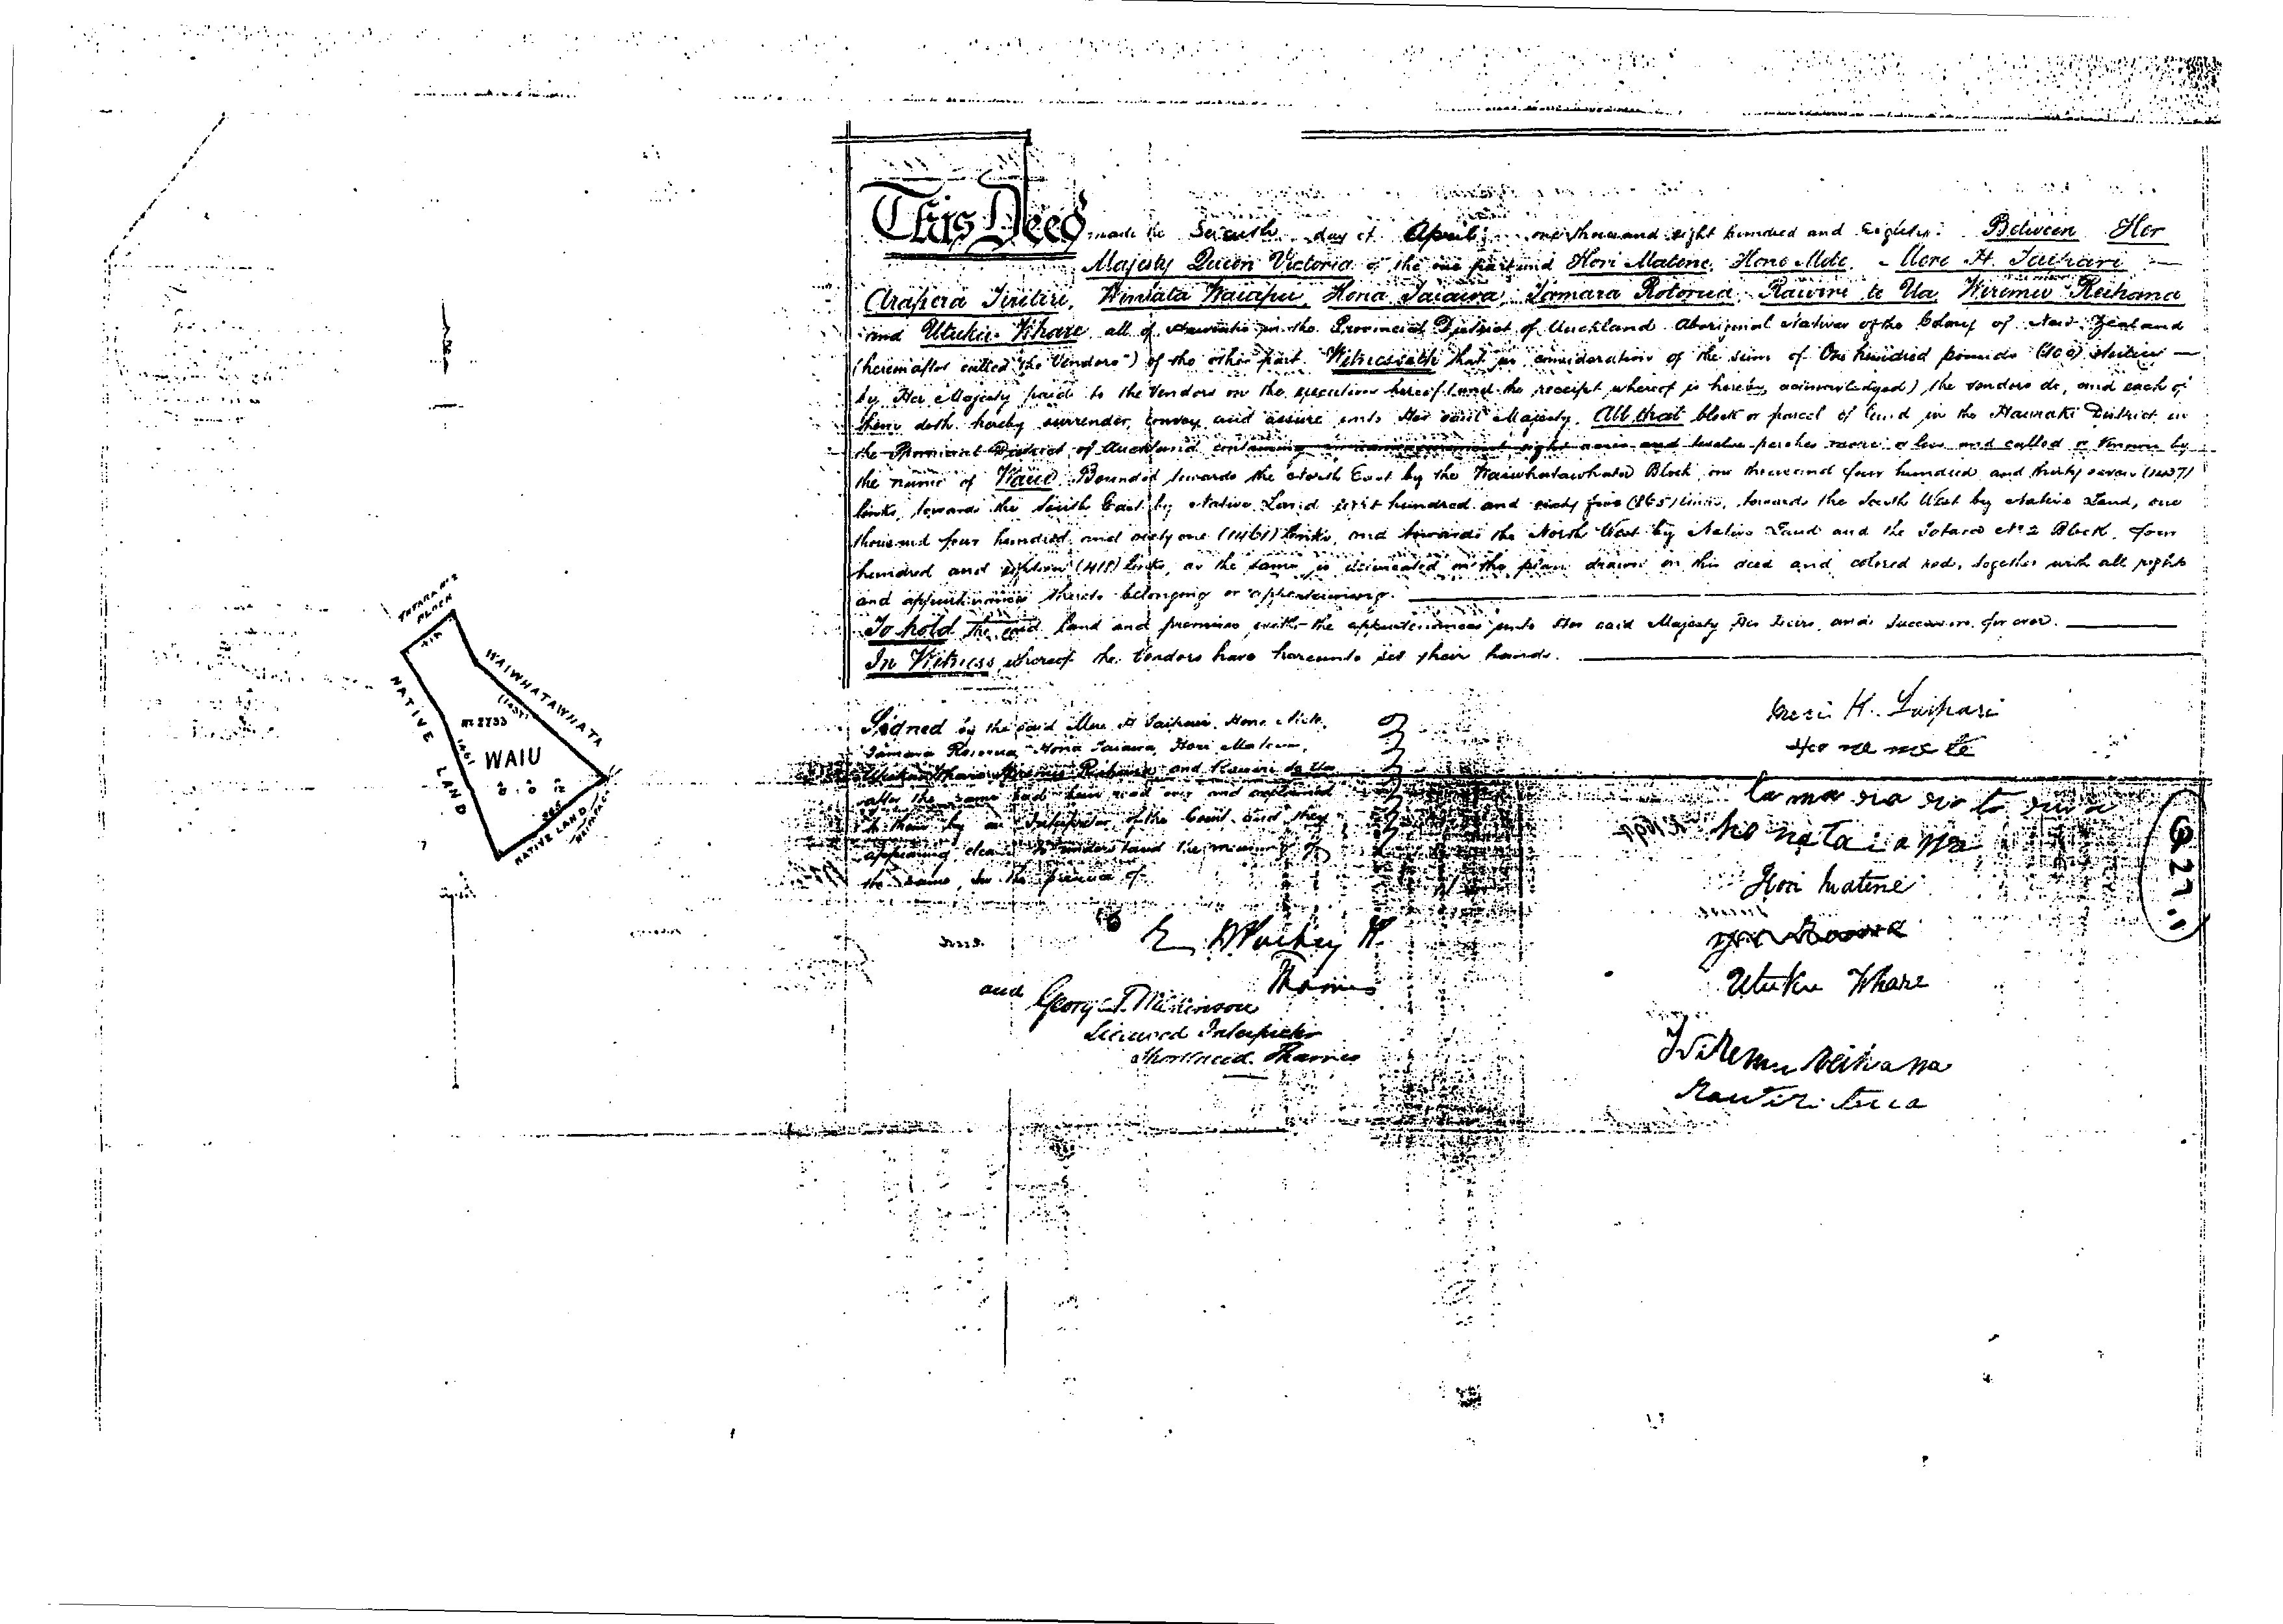 TOTARA Nº 2
BLOCK
418
WAIWHATAWHATA
(1437)
NATIVE LAND
1461
Nº 2733
WAIU
A R P
8 . 0 . 12
865
NATIVE LAND
This Deed made the Seventh day of April one thousand eight hundred and Eighty. Between Her
Majesty Queen Victoria of the one part and Hori Matene, Hone Mote, Mere H. Taipari
Arapera Tiritiri, Winiata Waiapu, Hona Taiawa, Tamara Rotorua, Rawiri te Ua, Wiremu Reihana
and Utuku Whare all of Hauraki in the Provincial District of Auckland Aboriginal Natives of the Colony of New Zealand
(hereinafter called "the Vendors") of the other part. Witnesseth that in consideration of the sum of One hundred pounds (100) sterling
by Her Majesty paid to the Vendors on the execution hereof (and the receipt whereof is hereby acknowledged) the vendors do, and each of
them doth hereby surrender, convey and assure unto Her said Majesty. All that block or parcel of land in the Hauraki District in
the Provincial District of Auckland containing eight acres and twelve perches more or less and called or known by
the name of Waiu Bounded towards the North East by the Waiwhatawhata Block, one thousand four hundred and thirty seven (1437)
links, towards the South East by Native Land eight hundred and sixty five (865) links, towards the South West by Native Land, one
thousand four hundred and sixty one (1461) links, and towards the North West by Native Land and the Totara Nº 2 Block, four
hundred and eighteen (418) links, as the same is delineated on the plan drawn on this deed and colored red, together with all rights
and appurtenances thereto belonging or appertaining.
To hold the said land and premises with the appurtenances unto Her said Majesty Her heirs and Successors for ever.
In Witness whereof the Vendors have hereunto set their hands.
Signed by the said Mere H Taipari, Hone Mote,
Tamara Rotorua, Hona Taiawa, Hori Matene,
Utuku Whare, Wiremu Reihana and Rawiri te Ua
after the same had been read over and explained
to them by an Interpreter of the Court and they
appearing clearly to understand the meaning of
the same, in the presence of
Thames
and George T. Wilkinson
Licensed Interpreter
Shortland Thames
Mere H. Taipari
Hone mote
tamara rotorua
honataiawa
Hori Matene
Utuku Whare
Wiremu Reihana
Rawiri teua